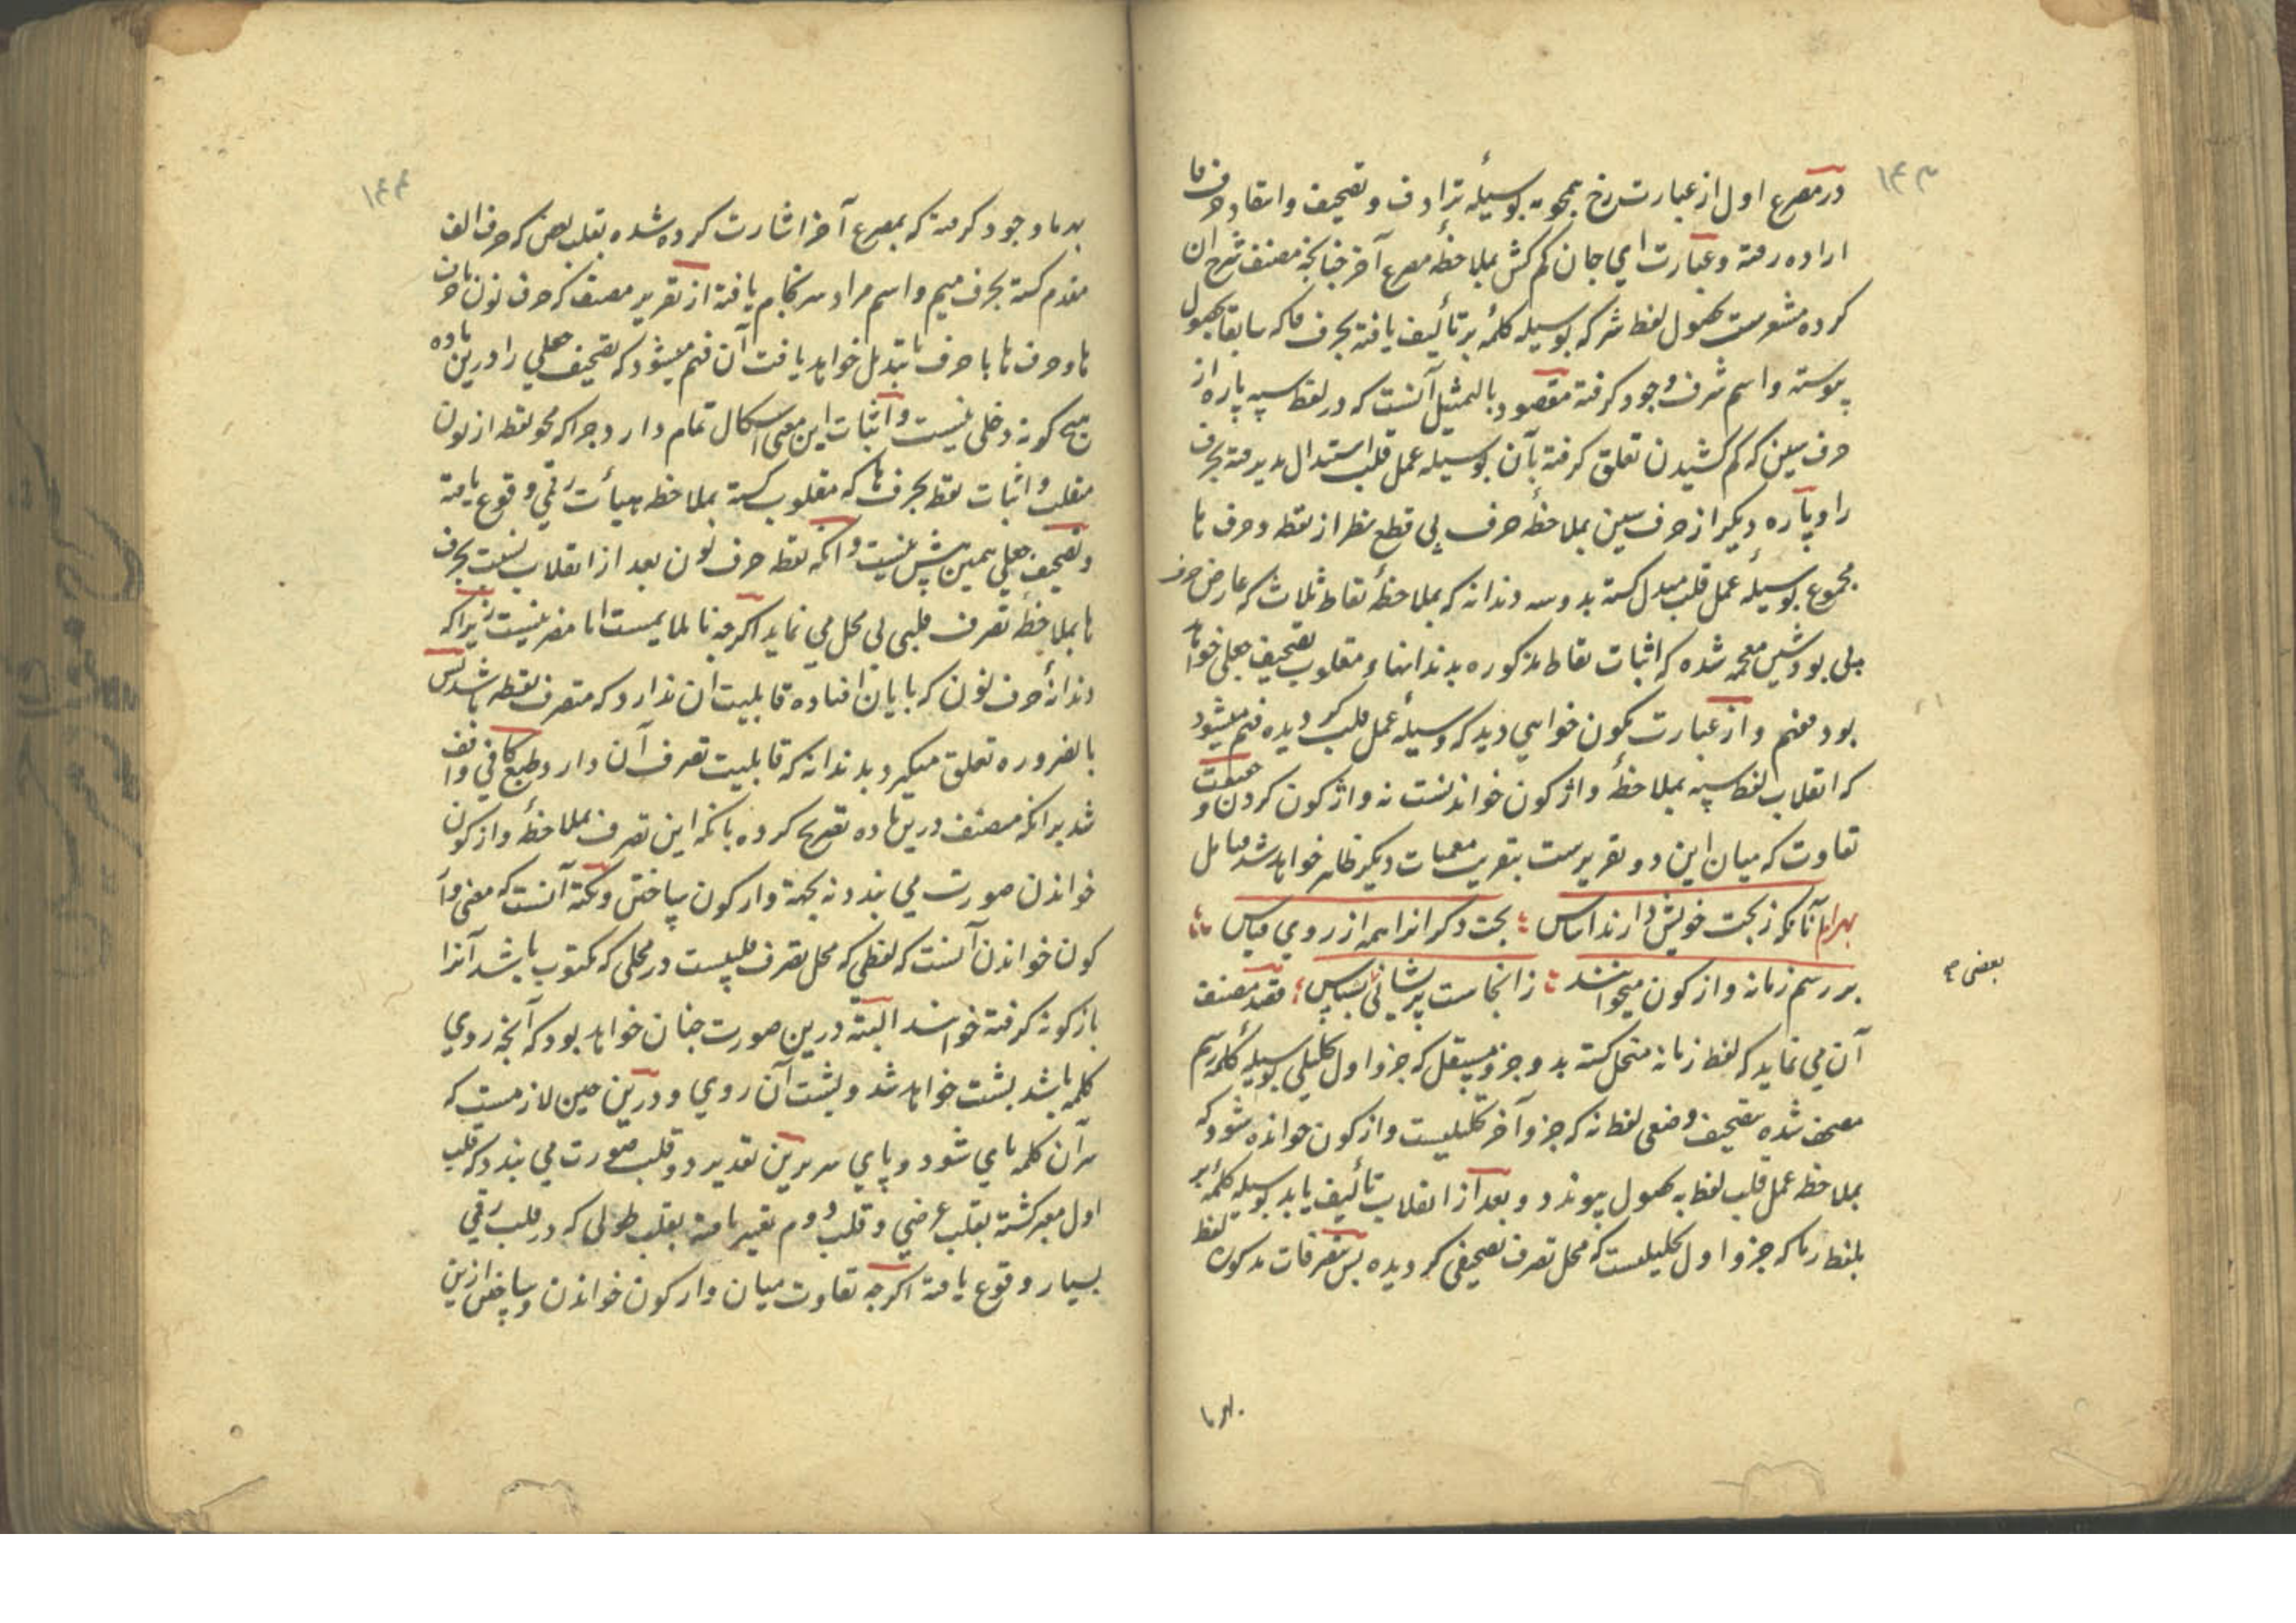 ۱۴۳
در مصرع اول از عبارت رخ همچو مه بوسیلهٔ ترادف و تصحیف و انتقاد حرف فا
اراده رفته و عبارت ای جان کم کش بملاحظهٔ مصرع آخر چنانچه مصنف شرح آن
کرده مشعرست بحصول لفظ شر که بوسیله کلمهٔ بر تألیف یافته بحرف فا که سابقا بحصول
پیوسته و اسم شرف وجود گرفته مقصود بالتمثیل آنست که در لفظ سپه پاره از
حرف سین که کم کشیدن تعلق گرفته بآن بوسیله عمل قلب استبدال پذیرفته بحرف
را و پاره دیگر از حرف سین بملاحظهٔ حرف پی قطع نظر از نقطه و حرف ها
مجموع بوسیلهٔ عمل قلب مبدل کشته بدو سه دندانه که بملاحظهٔ نقاط ثلاث که عارض حرف
پی بود شین معجمه شده که اثبات نقاط مذکوره بدندانهاء مقلوب بتصحیف جعلی خواهد
بود مفهم و از عبارت نگون خواهی دید که وسیلهٔ عمل قلب گردیده فهم میشود
که انقلاب لفظ سپه بملاحظهٔ واژگون خواندنست نه واژگون کردن و حقیقت
تفاوت که میان این دو تقریرست بتقریب معمیات دیگر ظاهر خواهد شد مامل
بهرام آنانکه ز بخت خویش دارند اساس ؛ بخت دگرانرا همه از روی قیاس ؛؛
بر رسم زمانه واژگون میخوانند ؛ زانجاست پریشانی بسپاس ؛ قصد مصنف
بعضی
آن می نماید که لفظ زمانه منحل کشته بدو جزو مستقل که جزو اول تحلیلی بوسیله کلمهٔ رسم
مصحف شده بتصحیف وضعی لفظ نه که جزو آخر تحلیلیست واژگون خوانده شود که
بملاحظه عمل قلب لفظ به بحصول پیوندد و بعد از انقلاب تألیف یابد بوسیله کلمهٔ بر
بلفظ رما که جزو اول تحلیلیست که محل تصرف تصحیفی گردیده پس تصرفات مذکوره لفظ
بهرما
۱۴۴
بهرما وجود گرفته که بمصرع آخر اشارت کرده شده بقلب بعض که حرف الف
مقدم کشته بحرف میم و اسم مراد سرنجام یافته از تقریر مصنف که حرف نون نا حرف
ها و حرف ها با حرف با تبدیل خواهد یافت آن فهم میشود که تصحیف جعلی را درین ماده
هیچ گونه دخلی نیست و اثبات این معنی اشکال تمام دارد چرا که محو نقطه از نون
منقلب و اثبات نقطه بحرف ها که مقلوب کشته بملاحظه هیأت رقمی وقوع یافته
و تصحیف جعلی همین بیش نیست و آنکه نقطه حرف نون بعد از انقلاب نسبت بحرف
ها بملاحظهٔ تصرف قلبی بی محل می نماید اگرچه نا ملایمست اما مضر نیست زیرا که
دندانهٔ حرف نون که بپایان افتاده قابلیت آن ندارد که متصرف نقطه باشد پس
بالضروره تعلق میگیرد بدندانه که قابلیت تصرف آن دارد و طبع کافی واقف
شد برانکه مصنف درین ماده تصریح کرده بانکه این تصرف بملاحظهٔ واژگون
خواندن صورت می بندد نه بجهة واژگون ساختن و نکته آنست که معنی واژ
گون خواندن آنست که لفظی که محل تصرف قلبیست در محلی که مکتوب باشد آنرا
باژگونه گرفته خوانند البته درین صورت چنان خواهد بود که آنچه روی
کلمه باشد پشت خواهد شد و پشت آن روی و درین حین لازمست که
سر آن کلمه پای شود و پای سر برین تقدیر دو قلب صورت می بندد که قلب
اول معبر کشته بقلب عرضی و قلب دوم تعبیر یافته بقلب طولی که در قلب رقمی
بسیار وقوع یافته اگرچه تفاوت میان واژگون خواندن و ساختن ازین